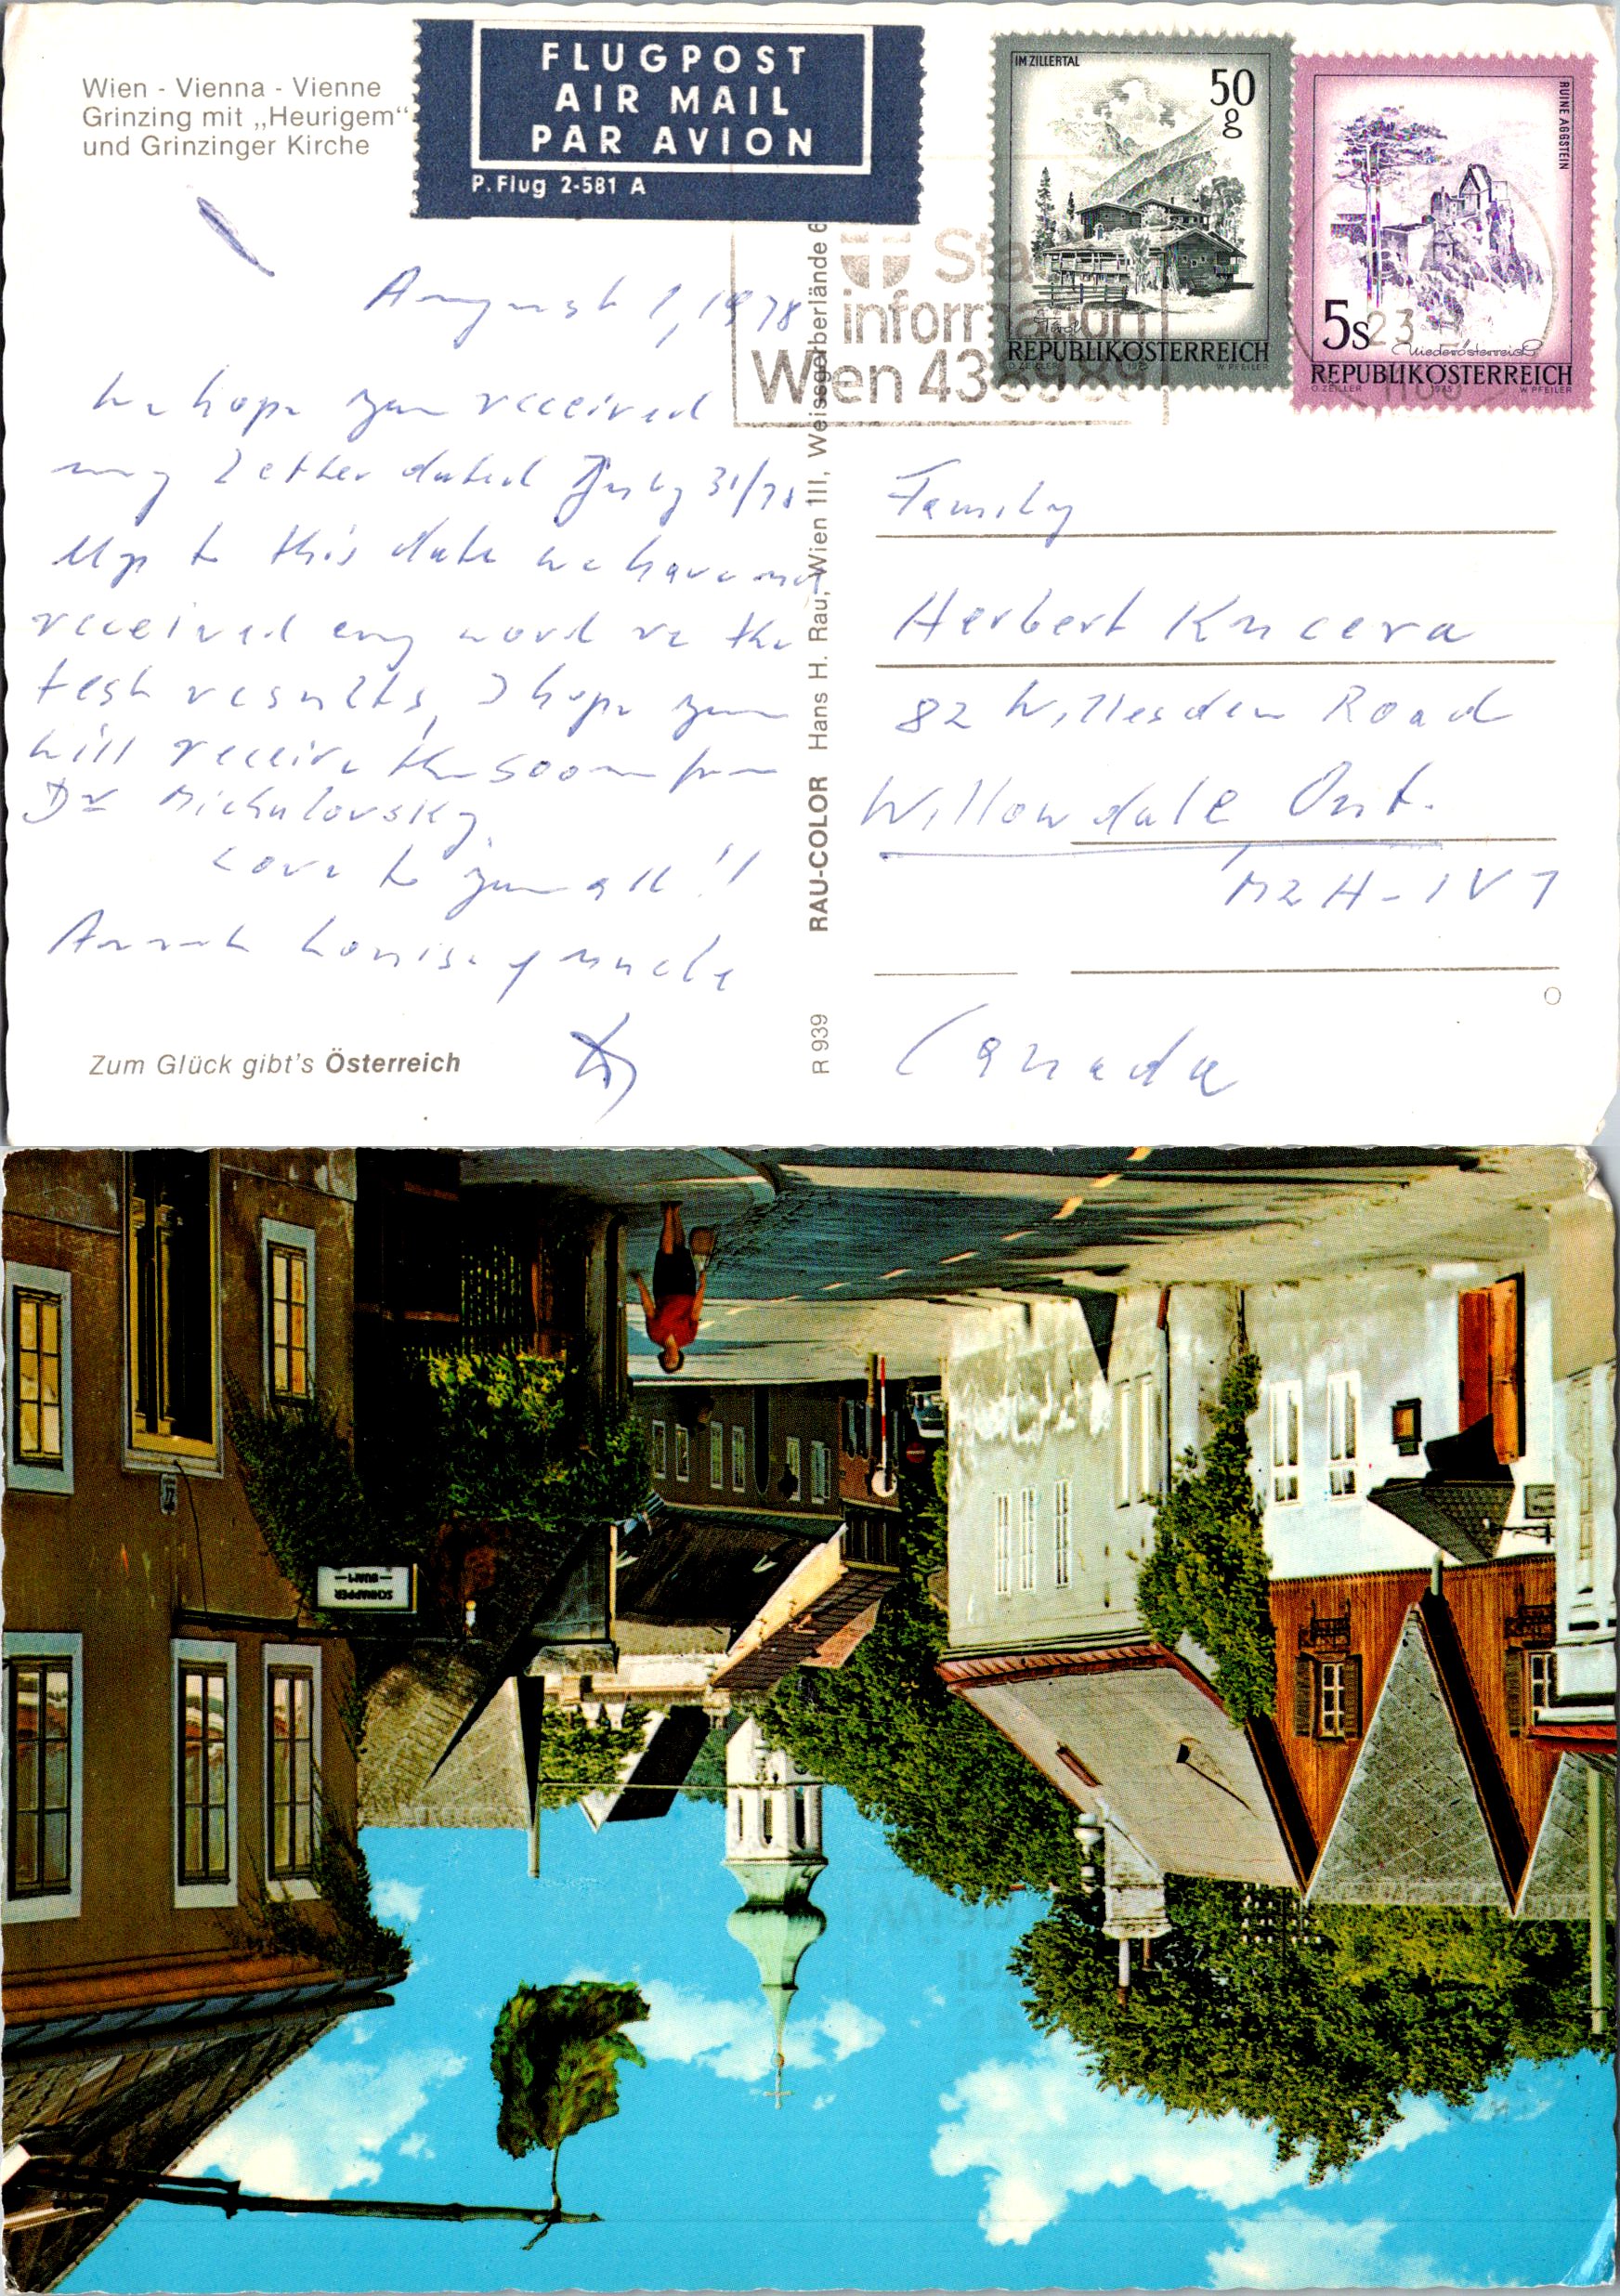 Wien - Vienna - Vienne
Grinzing mit „Heurigem“
und Grinzinger Kirche
FLUGPOST
AIR MAIL
PAR AVION
P. Flug 2-581 A
IM ZILLERTAL
50 g
Tirol
REPUBLIK ÖSTERREICH
O. ZEILLER 1975 W. PFEILER
RUINE AGGSTEIN
5 S
Niederösterreich
REPUBLIK ÖSTERREICH
O. ZEILLER 1975 W. PFEILER
Sta
information
Wien 438989
23
1180
August 1, 1978
We hope you received
my Letter dated July 31/78
Up to this date we have not
received any word re the
test results, I hope you
will receive the soon from
Dr Michulovsky.
Love to you all!!
Louise & uncle
Family
Herbert Kucera
82 Willesden Road
Willowdale Ont.
M2H-1V1
Canada
Zum Glück gibt's Österreich
R 939 RAU-COLOR Hans H. Rau, Wien III, Weissgerberlände 6
17
SCHNAPPER
BUAM'L